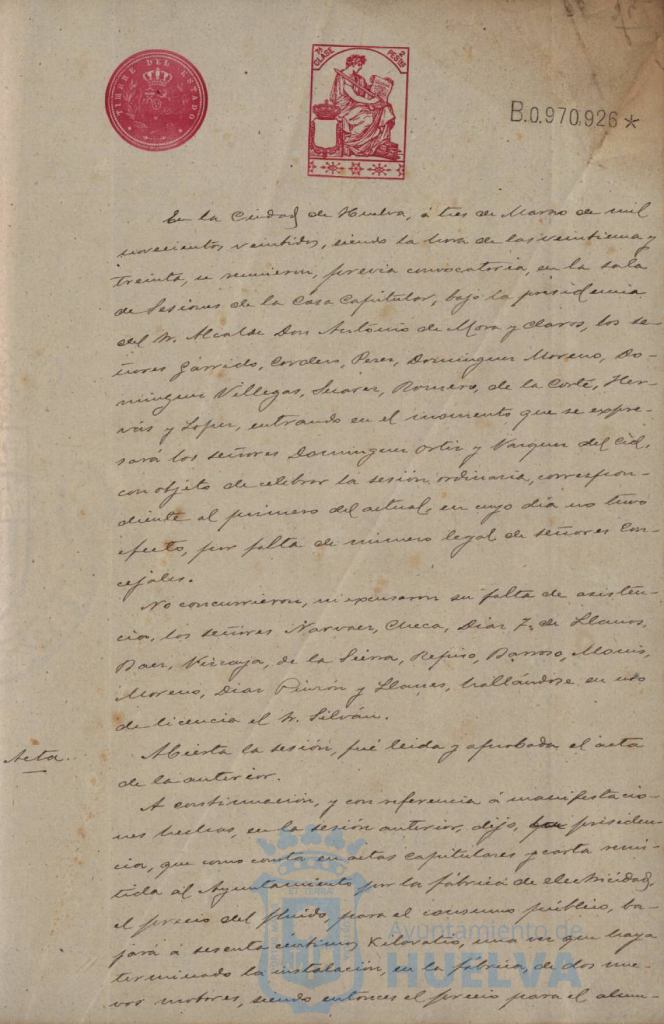 TIMBRE DEL ESTADO
1ª CLASE 2 PESTAS
B.0.970.926 *
En la Ciudad de Huelva, á tres de Marzo de mil
novecientos veintidos, siendo la hora de las veintiuna y
treinta, se reunieron, previa convocatoria, en la sala
de Sesiones de la Casa Capitular, bajo la presidencia
del Sr. Alcalde Don Antonio de Mora y Claros, los se-
ñores Garrido, Cordero, Perez, Dominguez Moreno, Do-
minguez Villegas, Suarez, Romero, de la Corte, Her-
vás y Lopez, entrando en el momento que se expre-
sará los señores Dominguez Ortiz y Vazquez del Cid,
con objeto de celebrar la sesión ordinaria, correspon-
diente al primero del actual, en cuyo día no tuvo
efecto, por falta de número legal de señores Con-
cejales.
No concurrieron, ni excusaron su falta de asisten-
cia, los señores Narvaez, Checa, Diaz F. de Llanos,
Baez, Vizcaya, de la Sierra, Barroso,
Moreno, Diaz Pinzón y Llanes, hallándose en uso
de licencia el Sr. Silván.
Acta.
Abierta la sesión, fué leida y aprobada el acta
de la anterior.
A continuación, y con referencia á manifestacio-
nes hechas, en la sesión anterior, dijo, presiden-
cia, que como consta en actas capitulares y carta remi-
tida al Ayuntamiento por la fábrica de electricidad,
el precio del fluido, para el consumo público, ba-
jará á sesenta centimos Kilovatio, una vez que haya
terminado la instalación, en la fábrica, de dos nue-
vos motores, siendo entonces el precio para el alum-
Ayuntamiento de
HUELVA